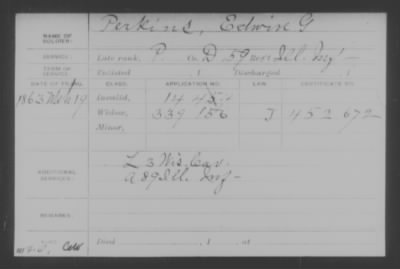 NAME OF SOLDIER: Perkins, Edwin G
SERVICE: Late rank, P. Co. D 59 Reg't Ill. Inf
TERM OF SERVICE: Enlisted , 1 Discharged , 1
DATE OF FILING. CLASS. APPLICATION NO. LAW. CERTIFICATE NO.
1863 Mch 19 Invalid, 14
Widow, 339 156 J 452 672
Minor,
ADDITIONAL SERVICES: L 3 Wis. Cav.
A 89 Ill. Inf
REMARKS:
Died , 1 , at